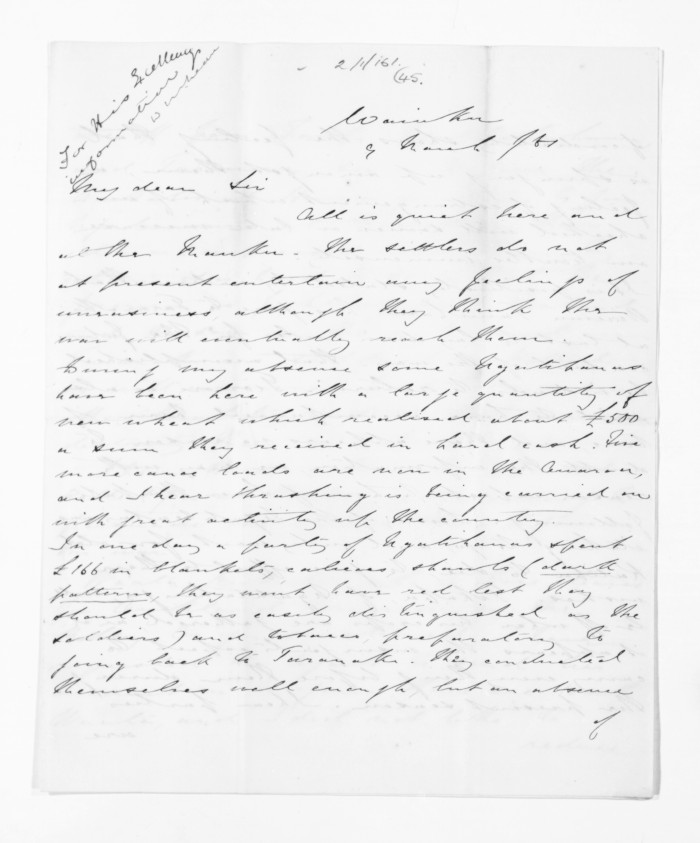 For His Excellency's
information
2/1/161.
(45.
Waiuku
9 March /61
My dear Sir
All is quiet here and
at the Mauku. The settlers do not
at present entertain any feelings of
uneasiness although they think the
war will eventually reach them.
During my absence some Ngatihauas
have been here with a large quantity of
new wheat which realised about £500
a sum they received in hard cash. Five
more canoe loads are now in the Awaroa,
and I hear thrashing is being carried on
with great activity up the country.
In one day a party of Ngatihauas spent
£166 in blankets, calicoes shawls (dark
patterns, they wont have red lest they
should be as easily distinguished as the
soldiers) and tobacco, preparatory to
going back to Taranaki. They conducted
themselves well enough but an absence
of